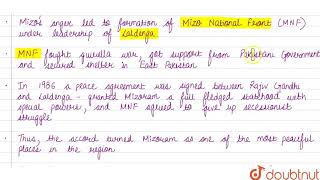 • Mizo's anger led to formation of Mizo National Front (MNF)
under leadership of Laldenga
• MNF fought guerilla war, got support from Pakistani Government
and secured shelter in East Pakistan
• In 1986 a peace agreement was signed between Rajiv Gandhi
and Laldenga - granted Mizoram a full fledged statehood with
special powers, and MNF agreed to give up secessionist
struggle
• Thus, the accord turned Mizoram as one of the most peaceful
places in the region
doubtnut